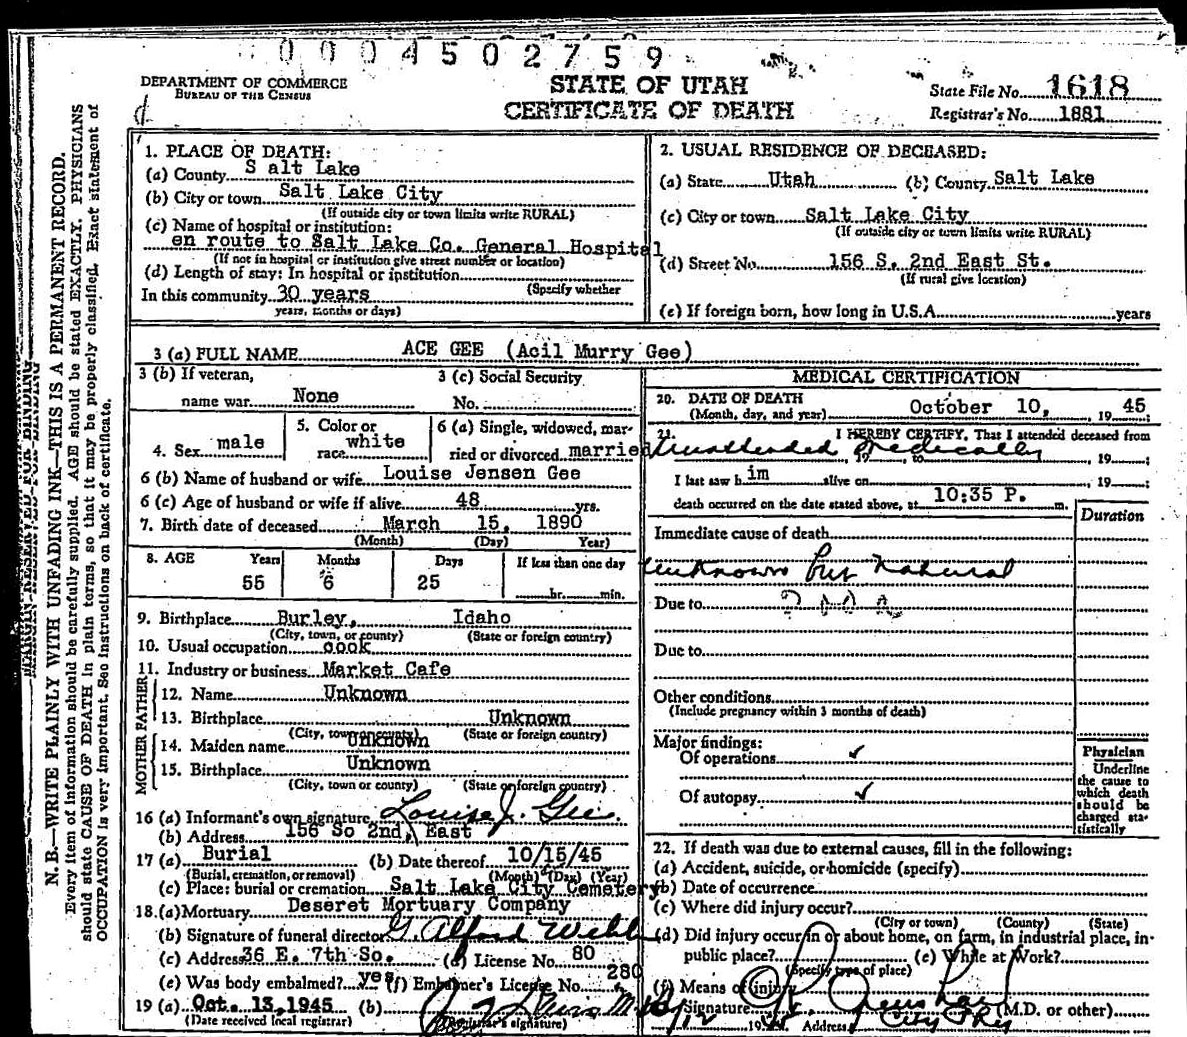 0004502759
DEPARTMENT OF COMMERCE
BUREAU OF THE CENSUS
STATE OF UTAH
CERTIFICATE OF DEATH
State File No. 1618
Registrar's No. 1881
MARGIN RESERVED FOR BINDING
N. B.—WRITE PLAINLY WITH UNFADING INK—THIS IS A PERMANENT RECORD.
Every item of information should be carefully supplied. AGE should be stated EXACTLY. PHYSICIANS
should state CAUSE OF DEATH in plain terms, so that it may be properly classified. Exact statement of
OCCUPATION is very important. See instructions on back of certificate.
1. PLACE OF DEATH:
(a) County S alt Lake
(b) City or town Salt Lake City
(If outside city or town limits write RURAL)
(c) Name of hospital or institution:
en route to Salt Lake Co. General Hospital
(If not in hospital or institution give street number or location)
(d) Length of stay: In hospital or institution
(Specify whether
In this community 30 years
years, months or days)
2. USUAL RESIDENCE OF DECEASED:
(a) State Utah (b) County Salt Lake
(c) City or town Salt Lake City
(If outside city or town limits write RURAL)
(d) Street No. 156 S. 2nd East St.
(If rural give location)
(e) If foreign born, how long in U.S.A. years
3 (a) FULL NAME ACE GEE (Acil Murry Gee)
3 (b) If veteran,
name war None
3 (c) Social Security
No.
4. Sex male
5. Color or
race white
6 (a) Single, widowed, mar-
ried or divorced married
6 (b) Name of husband or wife Louise Jensen Gee
6 (c) Age of husband or wife if alive 48 yrs.
7. Birth date of deceased March 15, 1890
(Month) (Day) Year)
8. AGE Years Months Days If less than one day
55 6 25 hr. min.
9. Birthplace Burley, Idaho
(City, town, or county) (State or foreign country)
10. Usual occupation cook
11. Industry or business Market Cafe
FATHER
12. Name Unknown
13. Birthplace Unknown
(City, town or county) (State or foreign country)
MOTHER
14. Maiden name Unknown
15. Birthplace Unknown
(City, town or county) (State or foreign country)
16 (a) Informant's own signature Louise J. Gee.
(b) Address 156 So 2nd, East
17 (a) Burial (b) Date thereof 10/15/45
(Burial, cremation, or removal) (Month) (Day) (Year)
(c) Place: burial or cremation Salt Lake City Cemetery
18. (a) Mortuary Deseret Mortuary Company
(b) Signature of funeral director G. Alford Webb
(c) Address 36 E. 7th So. (d) License No. 80
(e) Was body embalmed? yes (f) Embalmer's License No. 280
19 (a) Oct. 13, 1945 (b)
(Date received local registrar) (Registrar's signature)
MEDICAL CERTIFICATION
20. DATE OF DEATH
(Month, day, and year) October 10, 1945;
21. I HEREBY CERTIFY, That I attended deceased from
Unattended Medically 19 to 19 ;
I last saw h im alive on 19 ;
death occurred on the date stated above, at 10:35 P. m.
Duration
Immediate cause of death
Unknown but Natural
Due to
Due to
Other conditions
(Include pregnancy within 3 months of death)
Major findings:
Of operations ✓
Of autopsy ✓
Physician
Underline
the cause to
which death
should be
charged sta-
tistically
22. If death was due to external causes, fill in the following:
(a) Accident, suicide, or homicide (specify)
(b) Date of occurrence
(c) Where did injury occur?
(City or town) (County) (State)
(d) Did injury occur in or about home, on farm, in industrial place, in
public place? (e) While at Work?
(Specify type of place)
(f) Means of injury
Signature (M.D. or other)
19 Address City Phy